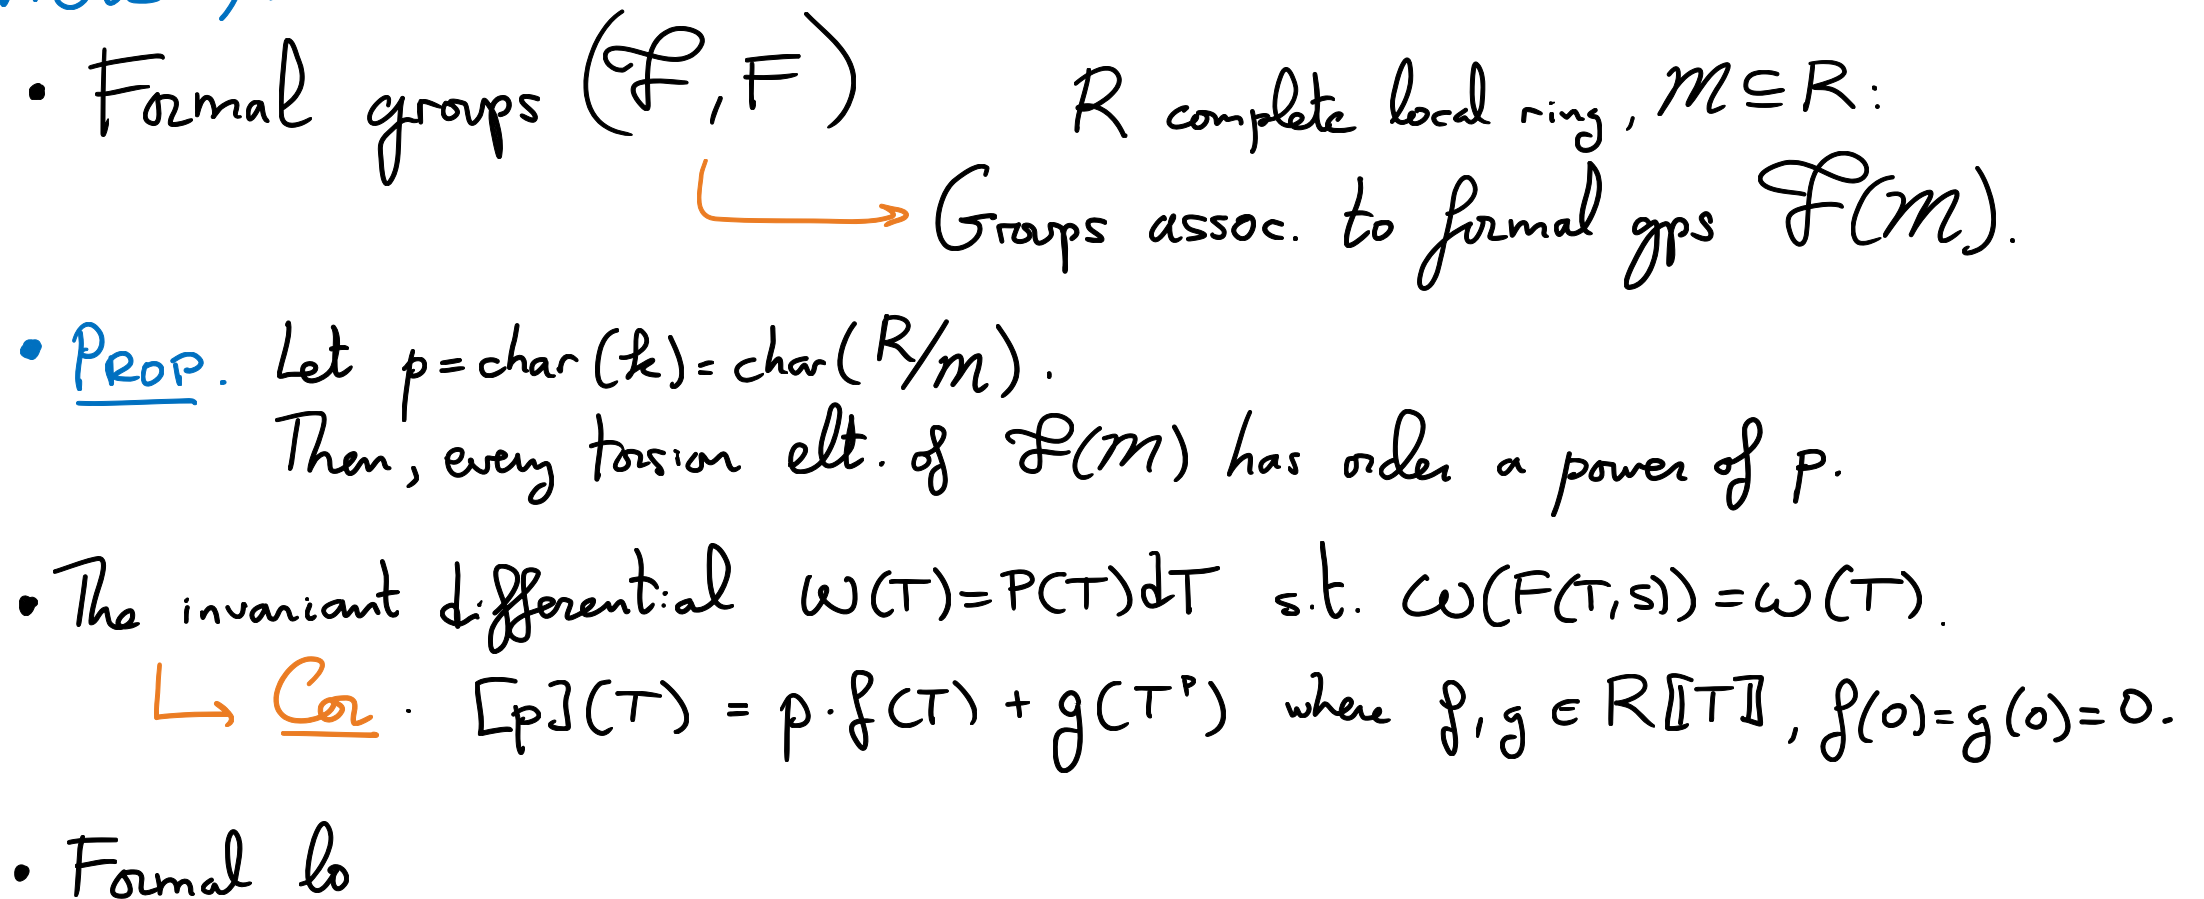 • Formal groups (ℱ, F)  R complete local ring, 𝓂 ⊆ R:
Groups assoc. to formal gps ℱ(𝓂).
• PROP. Let p = char(k) = char(R/𝓂).
Then, every torsion elt. of ℱ(𝓂) has order a power of p.
• The invariant differential ω(T) = P(T)dT s.t. ω(F(T,S)) = ω(T).
Cor. [p](T) = p·f(T) + g(Tᵖ) where f, g ∈ R⟦T⟧, f(0)=g(0)=0.
• Formal lo